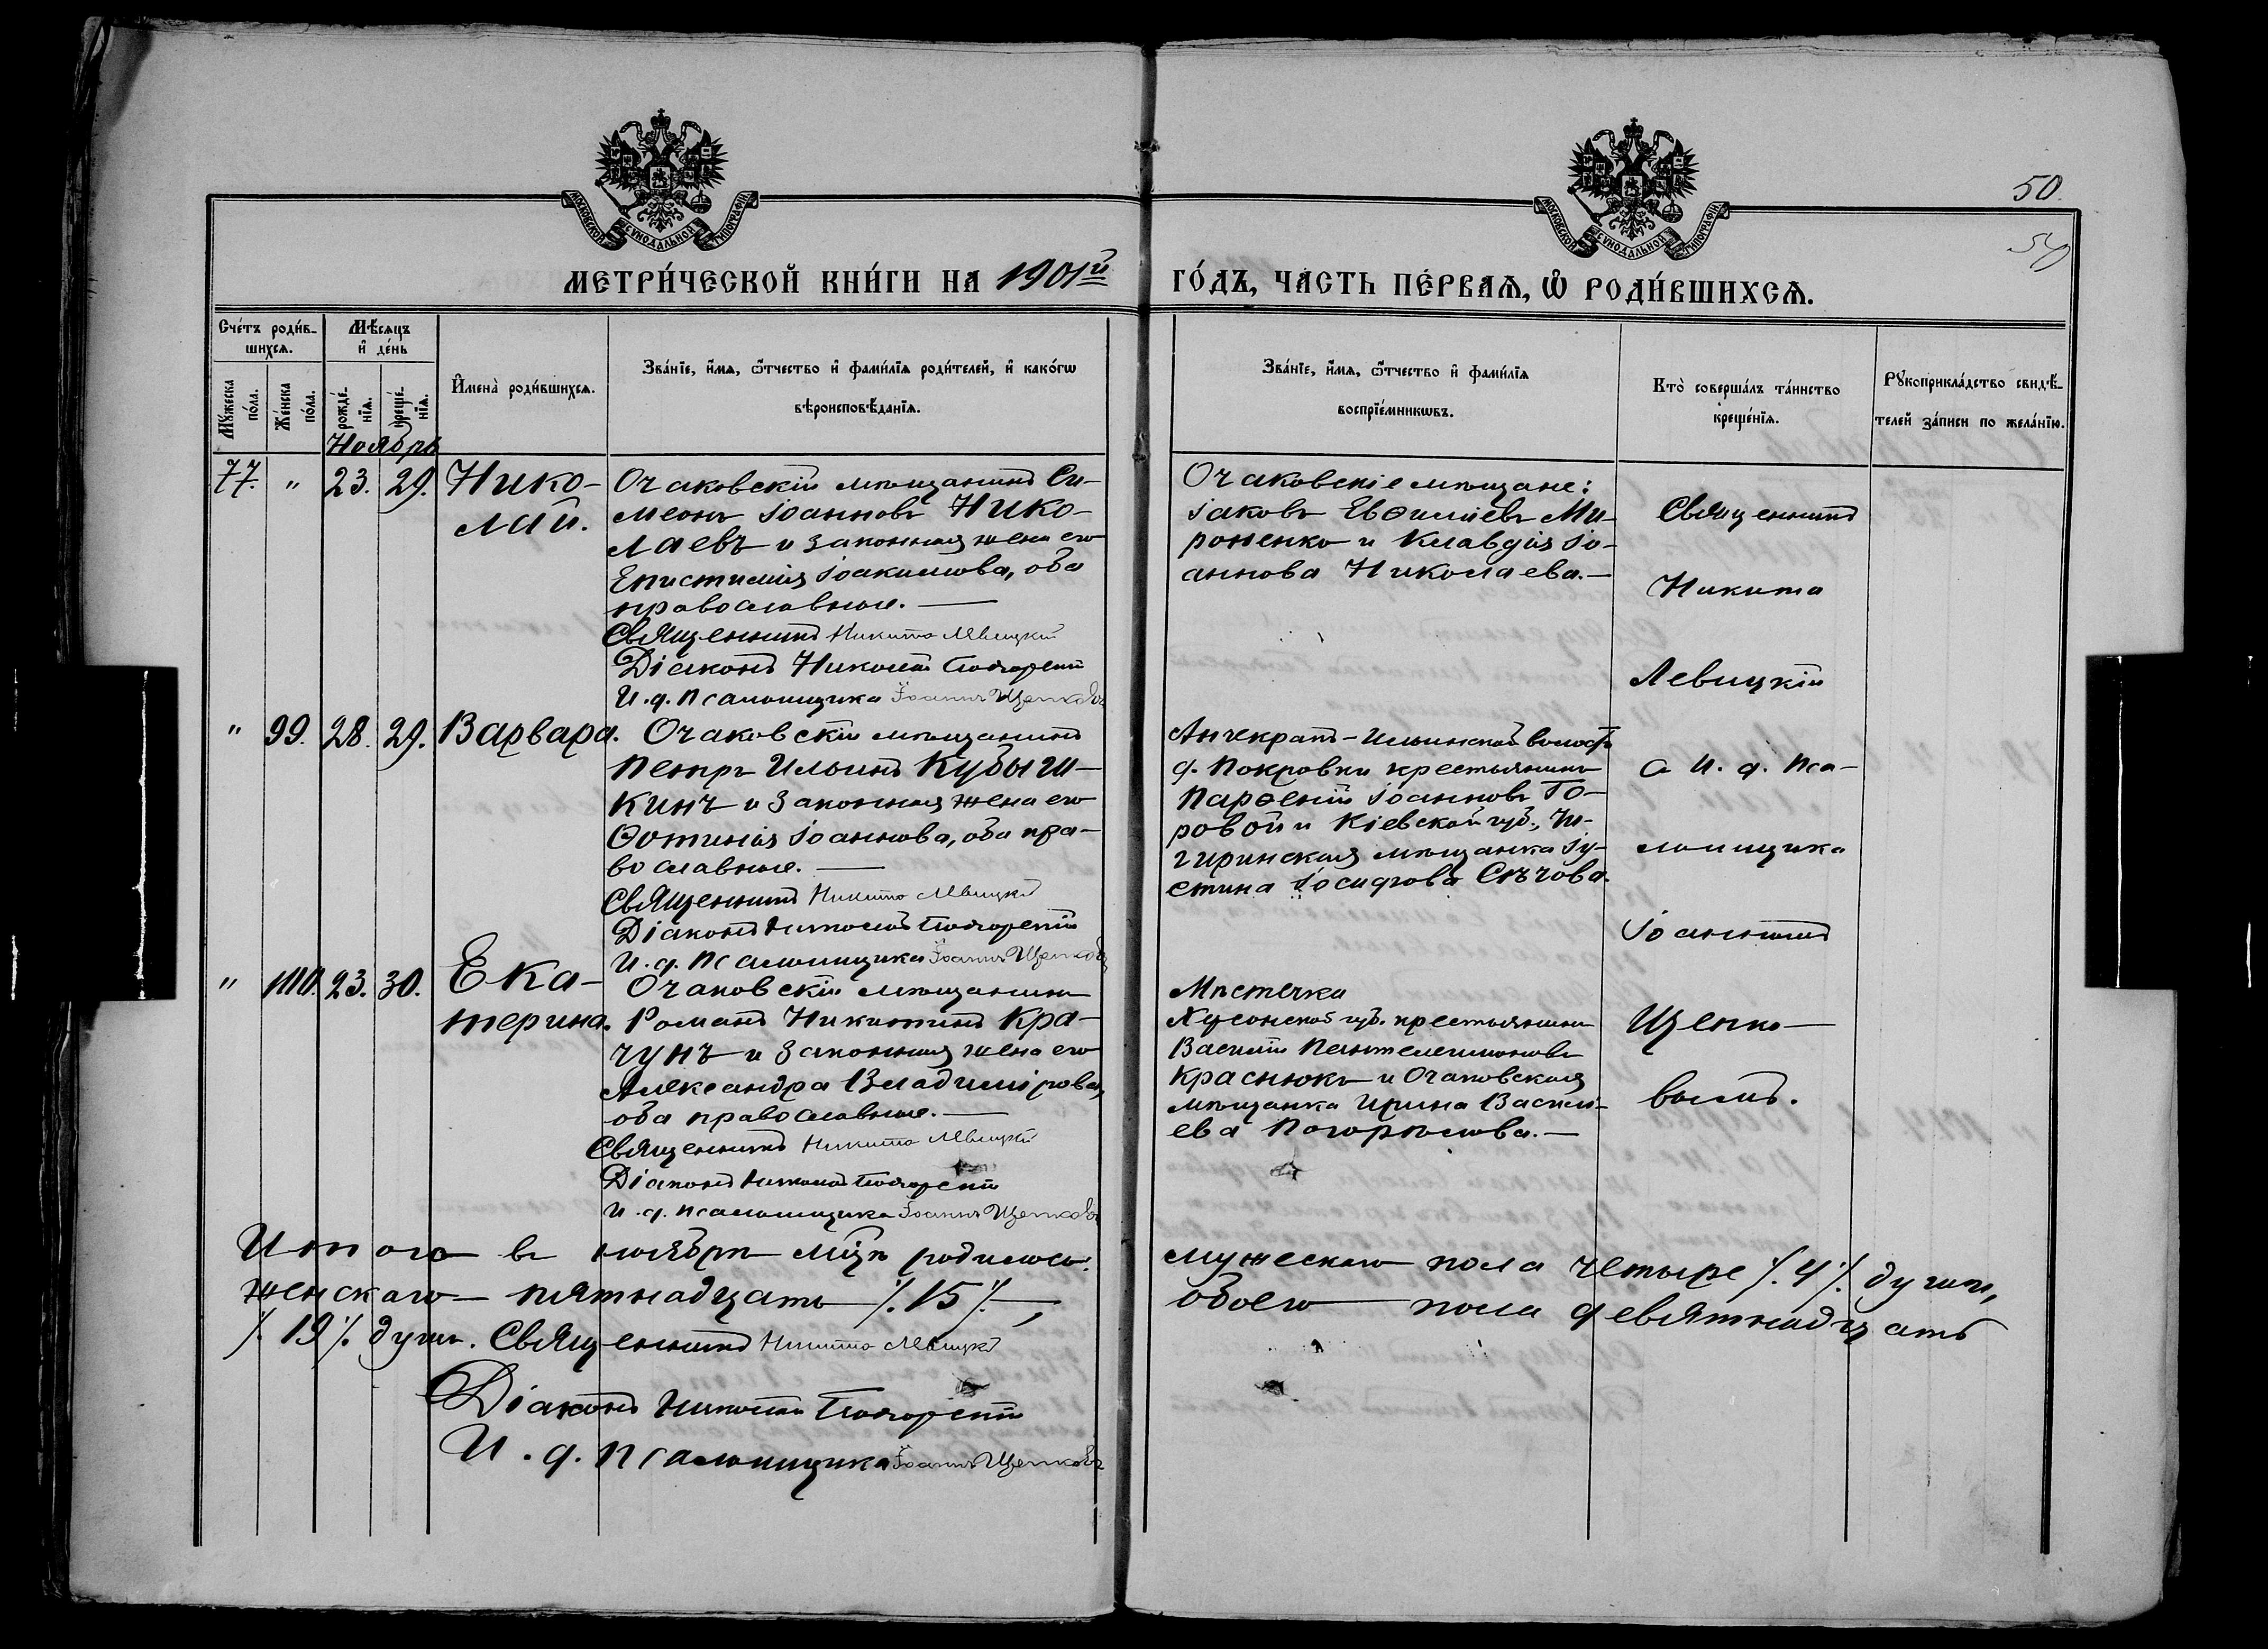 50.
50
МОСКОВСКОЙ СѴНОДАЛЬНОЙ ТИПОГРАФІИ
МОСКОВСКОЙ СѴНОДАЛЬНОЙ ТИПОГРАФІИ
МЕТРИ́ЧЕСКОЙ КНИ́ГИ НА 1901й ГО́ДЪ, ЧА́СТЬ ПЕ́РВАѦ, Ѽ РОДИ́ВШИХСѦ.
Сче́тъ роди́в-
шихсѧ.
Мꙋ́жеска по́ла.
Же́нска по́ла.
Мѣ́сѧцъ
и҆ де́нь
рожде́-
нїѧ.
креще́-
нїѧ.
И҆мена̀ роди́вшихсѧ.
Зва́нїе, и҆́мѧ, ѻ҆́тчество и҆ фами́лїѧ роди́телей, и҆ како́гѡ
вѣроисповѣ́данїѧ.
Зва́нїе, и҆́мѧ, ѻ҆́тчество и҆ фами́лїѧ
воспрїе́мникѡвъ.
Кто̀ соверша́лъ та́инство
креще́нїѧ.
Рꙋкоприкла́дство свидѣ́-
телей за́писи по жела́нїю.
Ноябрь
77. " 23. 29. Нико-
лай.
Очаковскій мѣщанинъ Си-
меонъ Іоанновъ Нико-
лаевъ и законная жена его
Епистимія Іоакимова, оба
православные. —
Священникъ Никита Левицкій
Діаконъ Николай
И. д. псаломщика Іоаннъ Щепковъ
Очаковскіе мѣщане:
Іаковъ Евѳиміевъ Ми-
роненко и Клавдія Іо-
аннова Николаева. —
Священникъ
Никита
Левицкій
" 99. 28. 29. Варвара.
Очаковскій мѣщанинъ
Петръ Ильинъ Кубыш-
кинъ и законная жена его
Ѳотинія Іоаннова, оба пра-
вославные. —
Священникъ Никита Левицкій
Діаконъ Николай
И. д. псаломщика Іоаннъ Щепковъ
Анчекракъ-Ильинской волости
д. Покровки крестьянинъ
Парѳеній Іоанновъ Го-
ровой и Кіевской губ., Чи-
гиринская мѣщанка Іу-
стина Іосифова Сѣчова.
с И. д. Пса-
ломщика
Іоанномъ
" 100. 23. 30. Ека-
терина.
Очаковскій мѣщанинъ
Романъ Никитинъ Кра-
чунъ и законная жена его
Александра Владимірова,
оба православные. —
Священникъ Никита Левицкій
Діаконъ Николай
И. д. псаломщика Іоаннъ Щепковъ
Мѣстечка
Херсонской губ. крестьянинъ
Василій Пантелеимоновъ
Краснюкъ и Очаковская
мѣщанка Ирина Василі-
ева Погорѣлова. —
Щепко-
вымъ.
Итого въ ноябрѣ мцѣ родилось: мужескаго пола четыре /. 4 /. души,
женскаго — пятнадцать /. 15 /. —, обоего — пола девятнадцать
/. 19 /. душъ. Священникъ Никита Левицкій
Діаконъ Николай
И. д. псаломщика Іоаннъ Щепковъ